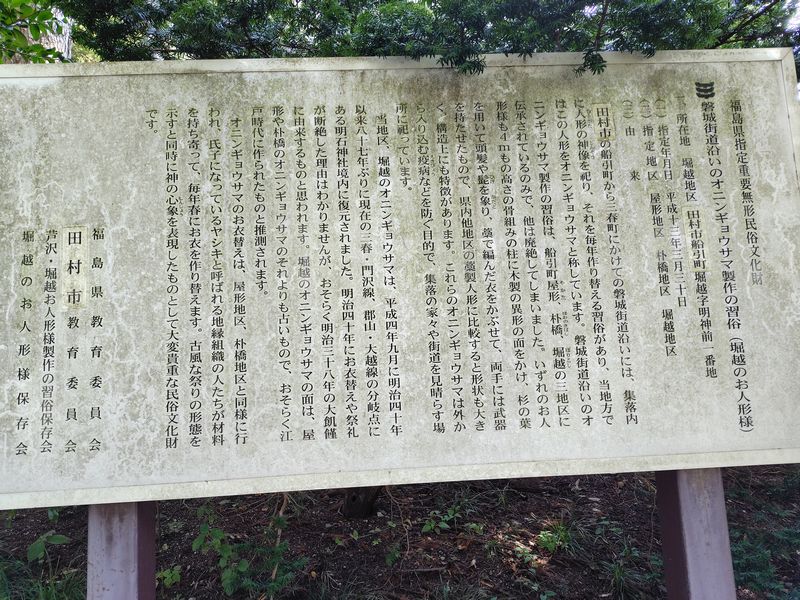 福島県指定重要無形民俗文化財
磐城街道沿いのオニンギョウサマ製作の習俗(堀越のお人形様)
一、所在地 堀越地区 田村市船引町堀越字明神前一番地
(一)指定年月日 平成十三年三月三十日
(二)指定地区 屋形地区 朴橋地区 堀越地区
(三)由来
田村市の船引町から三春町にかけての磐城街道沿いには、集落内
に人形の神像を祀り、それを毎年作り替える習俗があり、当地方で
はこの人形をオニンギョウサマと称しています。磐城街道沿いのオ
ニンギョウサマ製作の習俗は、船引町屋形、朴橋、堀越の三地区に
伝承されているのみで、他は廃絶してしまいました。いずれのお人
形様も4mもの高さの骨組みの柱に木製の異形の面をかけ、杉の葉
を用いて頭髪や髭を象り、藁で編んだ衣をかぶせて、両手には武器
を持たせたもので、県内他地区の藁製人形に比較すると形状も大き
く、構造上にも特徴があります。これらのオニンギョウサマは外か
ら入り込む疫病などを防ぐ目的で、集落の家々や街道を見晴らす場
所に祀っています。
当地区、堀越のオニンギョウサマは、平成四年九月に明治四十年
以来八十七年ぶりに現在の三春・門沢線、郡山・大越線の分岐点に
ある明石神社境内に復元されました。明治四十年にお衣替えや祭礼
が断絶した理由はわかりませんが、おそらく明治三十八年の大飢饉
に由来するものと思われます。堀越のオニンギョウサマの面は、屋
形や朴橋のオニンギョウサマのそれよりも古いもので、おそらく江
戸時代に作られたものと推測されます。
オニンギョウサマのお衣替えは、屋形地区、朴橋地区と同様に行
われ、氏子になっているヤシキと呼ばれる地縁組織の人たちが材料
を持ち寄って、毎年春にお衣を作り替えます。古風な祭りの形態を
示すと同時に神の心象を表現したものとして大変貴重な民俗文化財
です。
福島県教育委員会
田村市教育委員会
芦沢・堀越お人形様製作の習俗保存会
堀越のお人形様保存会